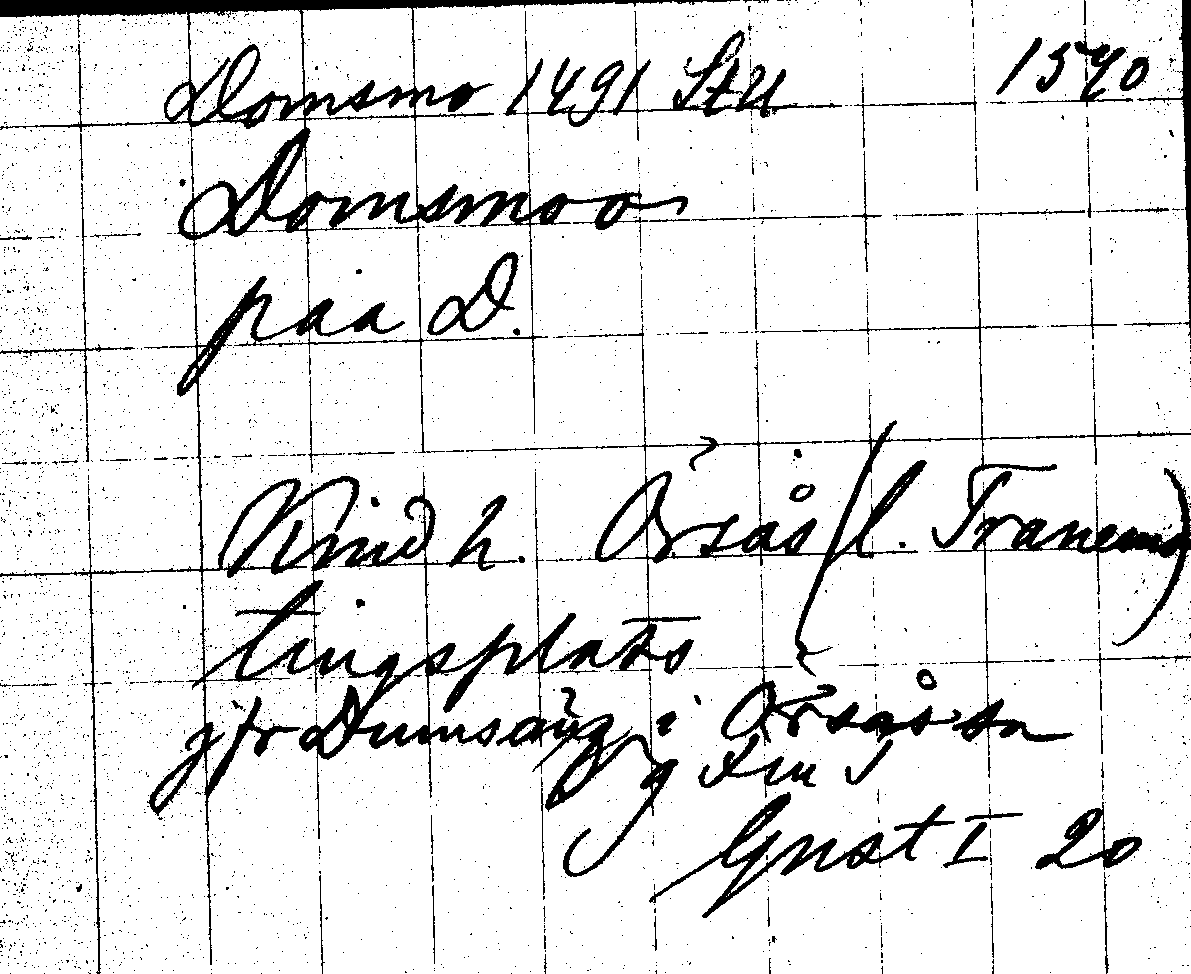 Domsmo 1491 StU 1540
Domsmoo
paa D.
Kind h. Örsås (l. Tranemo)
tingsplats
jfr Dumsäng i Örsås sn
Gnst I 20